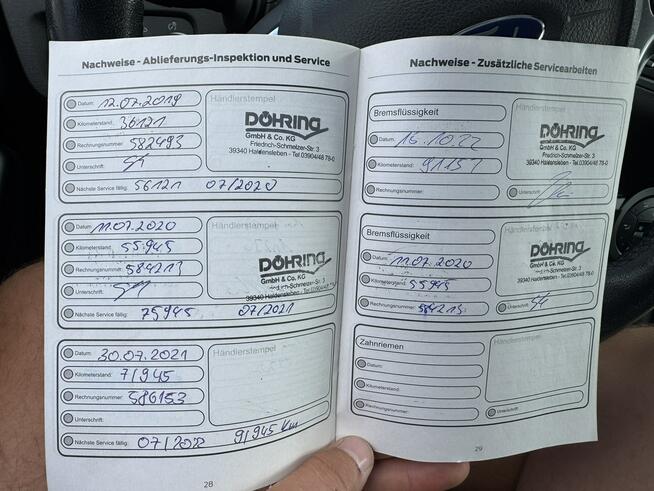 Nachweise - Ablieferungs-Inspektion und Service
Datum: 12.07.2019
Kilometerstand: 36121
Rechnungsnummer: 582493
Unterschrift:
Nächste Service fällig: 56121 07/2020
Händlerstempel
DÖHRING
GmbH & Co. KG
Friedrich-Schmelzer-Str. 3
39340 Haldensleben - Tel.03904/48 78-0
Datum: 11.07.2020
Kilometerstand: 55.945
Rechnungsnummer: 584213
Unterschrift:
Nächste Service fällig: 75945 07/2021
Händlerstempel
DÖHRING
GmbH & Co. KG
Friedrich-Schmelzer-Str. 3
39340 Haldensleben - Tel.03904/48 78-0
Datum: 30.07.2021
Kilometerstand: 71945
Rechnungsnummer: 586153
Unterschrift:
Nächste Service fällig: 07/2022 91945 Km
Händlerstempel
28
Nachweise - Zusätzliche Servicearbeiten
Bremsflüssigkeit
Datum: 15.10.22
Kilometerstand: 91157
Rechnungsnummer:
Händlerstempel
DÖHRING
GmbH & Co. KG
Friedrich-Schmelzer-Str. 3
39340 Haldensleben - Tel.03904/48 78-0
Unterschrift:
Bremsflüssigkeit
Datum: 11.07.2020
Kilometerstand: 55945
Rechnungsnummer: 584213
Händlerstempel
DÖHRING
GmbH & Co. KG
Friedrich-Schmelzer-Str. 3
39340 Haldensleben - Tel.03904/48 78-0
Unterschrift:
Zahnriemen
Datum:
Kilometerstand:
Rechnungsnummer:
Händlerstempel
Unterschrift:
29